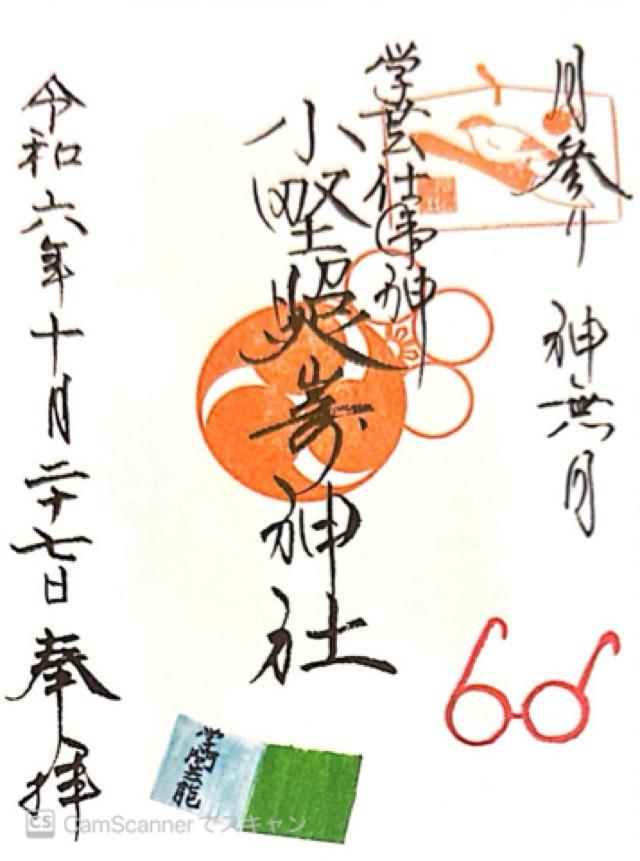 月参り 神無月
学芸仕事神
小野照崎神社
令和六年十月二十七日 奉拝
学問芸能
CS CamScanner でスキャン